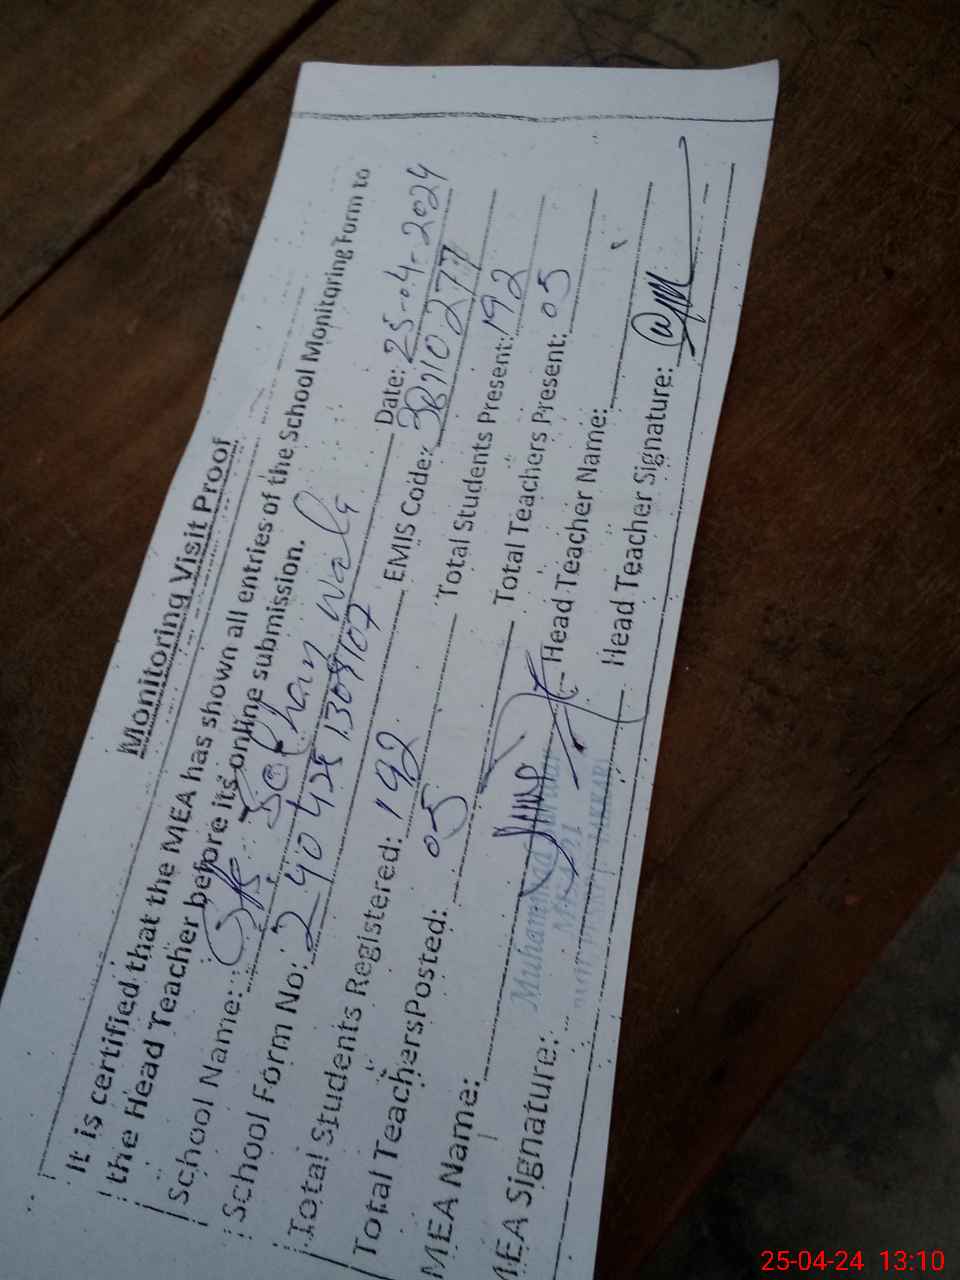 Monitoring Visit Proof
It is certified that the MEA has shown all entries of the School Monitoring Form to
the Head Teacher before its online submission.
School Name: Date: 25-04-2024
School Form No: 2404251309107 EMIS Code: 38210277
Total Students Registered: 192 Total Students Present: 192
Total TeachersPosted: 05 Total Teachers Present: 05
MEA Name: Head Teacher Name:
MEA Signature: Head Teacher Signature:
Muhammad
25-04-24 13:10